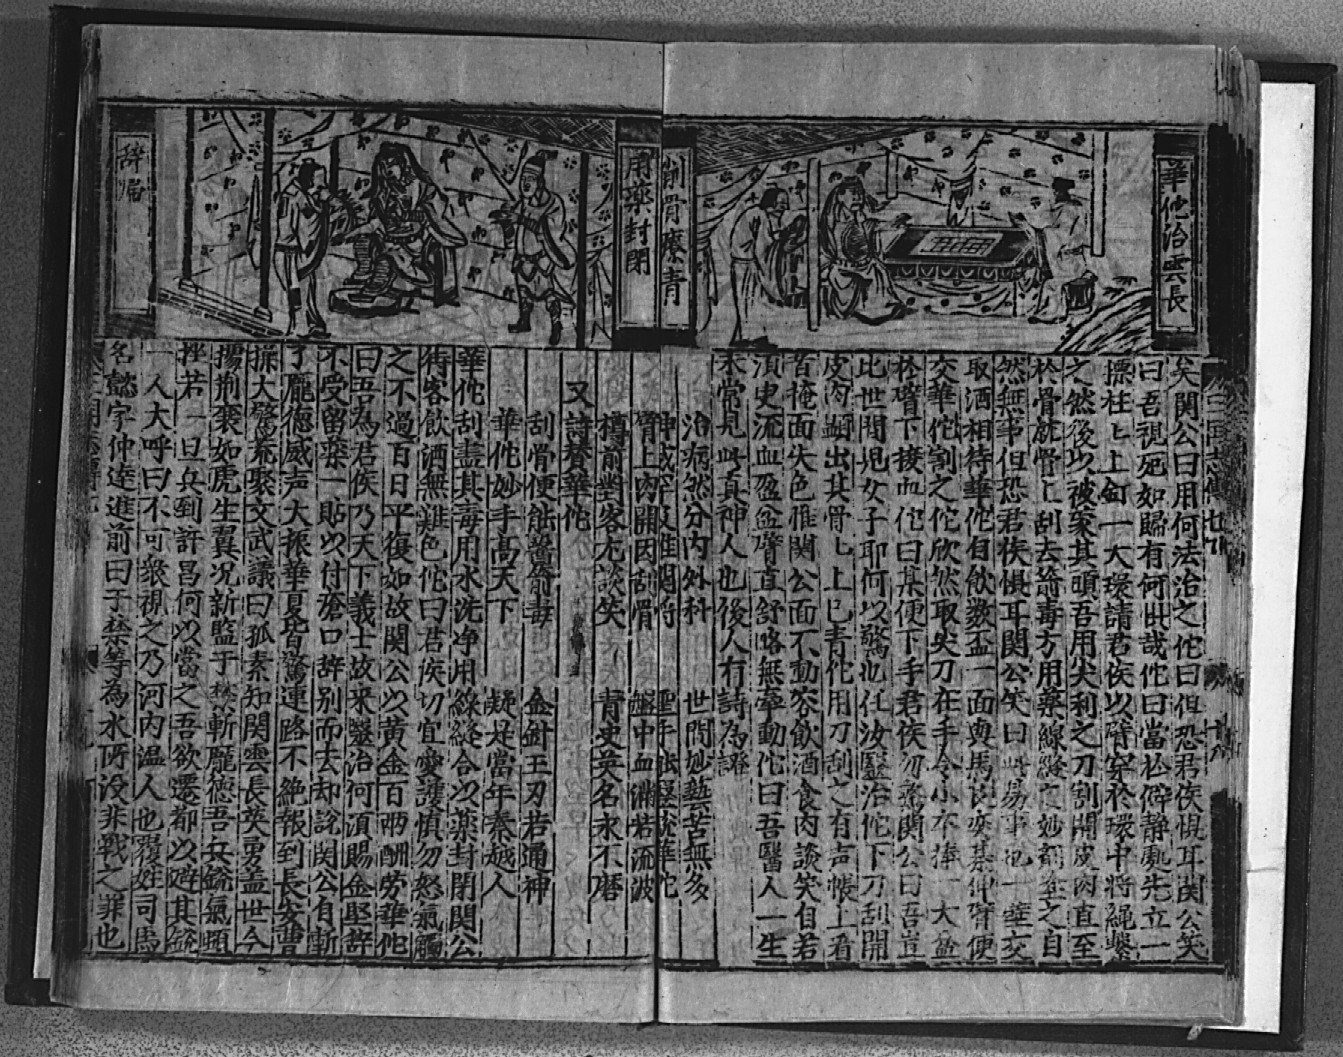 華佗治雲長
削骨療毒
用藥封閉
辞歸
矢関公曰用何法治之佗曰但恐君侯惧耳関公笑
曰吾視死如歸有何惧哉佗曰當於僻静處先立一
摽柱上上釘一大環請君侯以臂穿於環中将繩繫
之然後以被蒙其頭吾用尖利之刀割開皮肉直至
於骨就骨上刮去箭毒方用藥線縫之妙剤塗之自
然無事但恐君侯惧耳関公笑曰此易事也一華交
取酒相待華佗自飲数盃一面與馬良奕棊伸臂便
交華佗割之佗欣然取尖刀在手令小卒捧一大盆
於臂下接血佗曰某便下手君侯勿驚関公曰吾豈
比世間兒女子耶何以驚也任汝醫治佗下刀刮開
皮肉齦出其骨上上已青佗用刀刮之有声帳上看
者掩面失色惟関公面不動容飲酒食肉談笑自若
須臾流血盈盆臂直舒略無毫動佗曰吾醫人一生
未常見此真神人也後人有詩為證
治病然分内外科　世間妙藝苦無多
神威罕及惟関将　聖手能醫說華佗
臂上肉開因刮骨　盤中血淋若流波
樽前對客尤談笑　青史英名永不磨
又詩賛華佗
刮骨便蝕醫箭毒　金針玉刃若通神
華佗妙手高天下　疑是當年秦越人
華佗刮盡其毒用水洗净用線縫合以藥封閉関公
待客飲酒無難色佗曰君侯切宜愛護慎勿怒氣觸
之不過百日平復如故関公以黄金百両酬勞華佗
曰吾為君侯乃天下義士故来醫治何須賜金堅辞
不受留藥一貼以付瘡口辞别而去却說関公自斬
了龐德威声大振華夏皆驚連路不絶報到長安曹
操大驚荒聚文武議曰孤素知関雲長英勇盖世今
㨿荆襄如虎生翼况新監于禁斬龐德吾兵銳氣頓
挫若一旦兵到許昌何以當之吾欲遷都以避其銳
一人大呼曰不可衆視之乃河内温人也覆姓司馬
名懿字仲達進前曰于禁等為水所没非戰之罪也